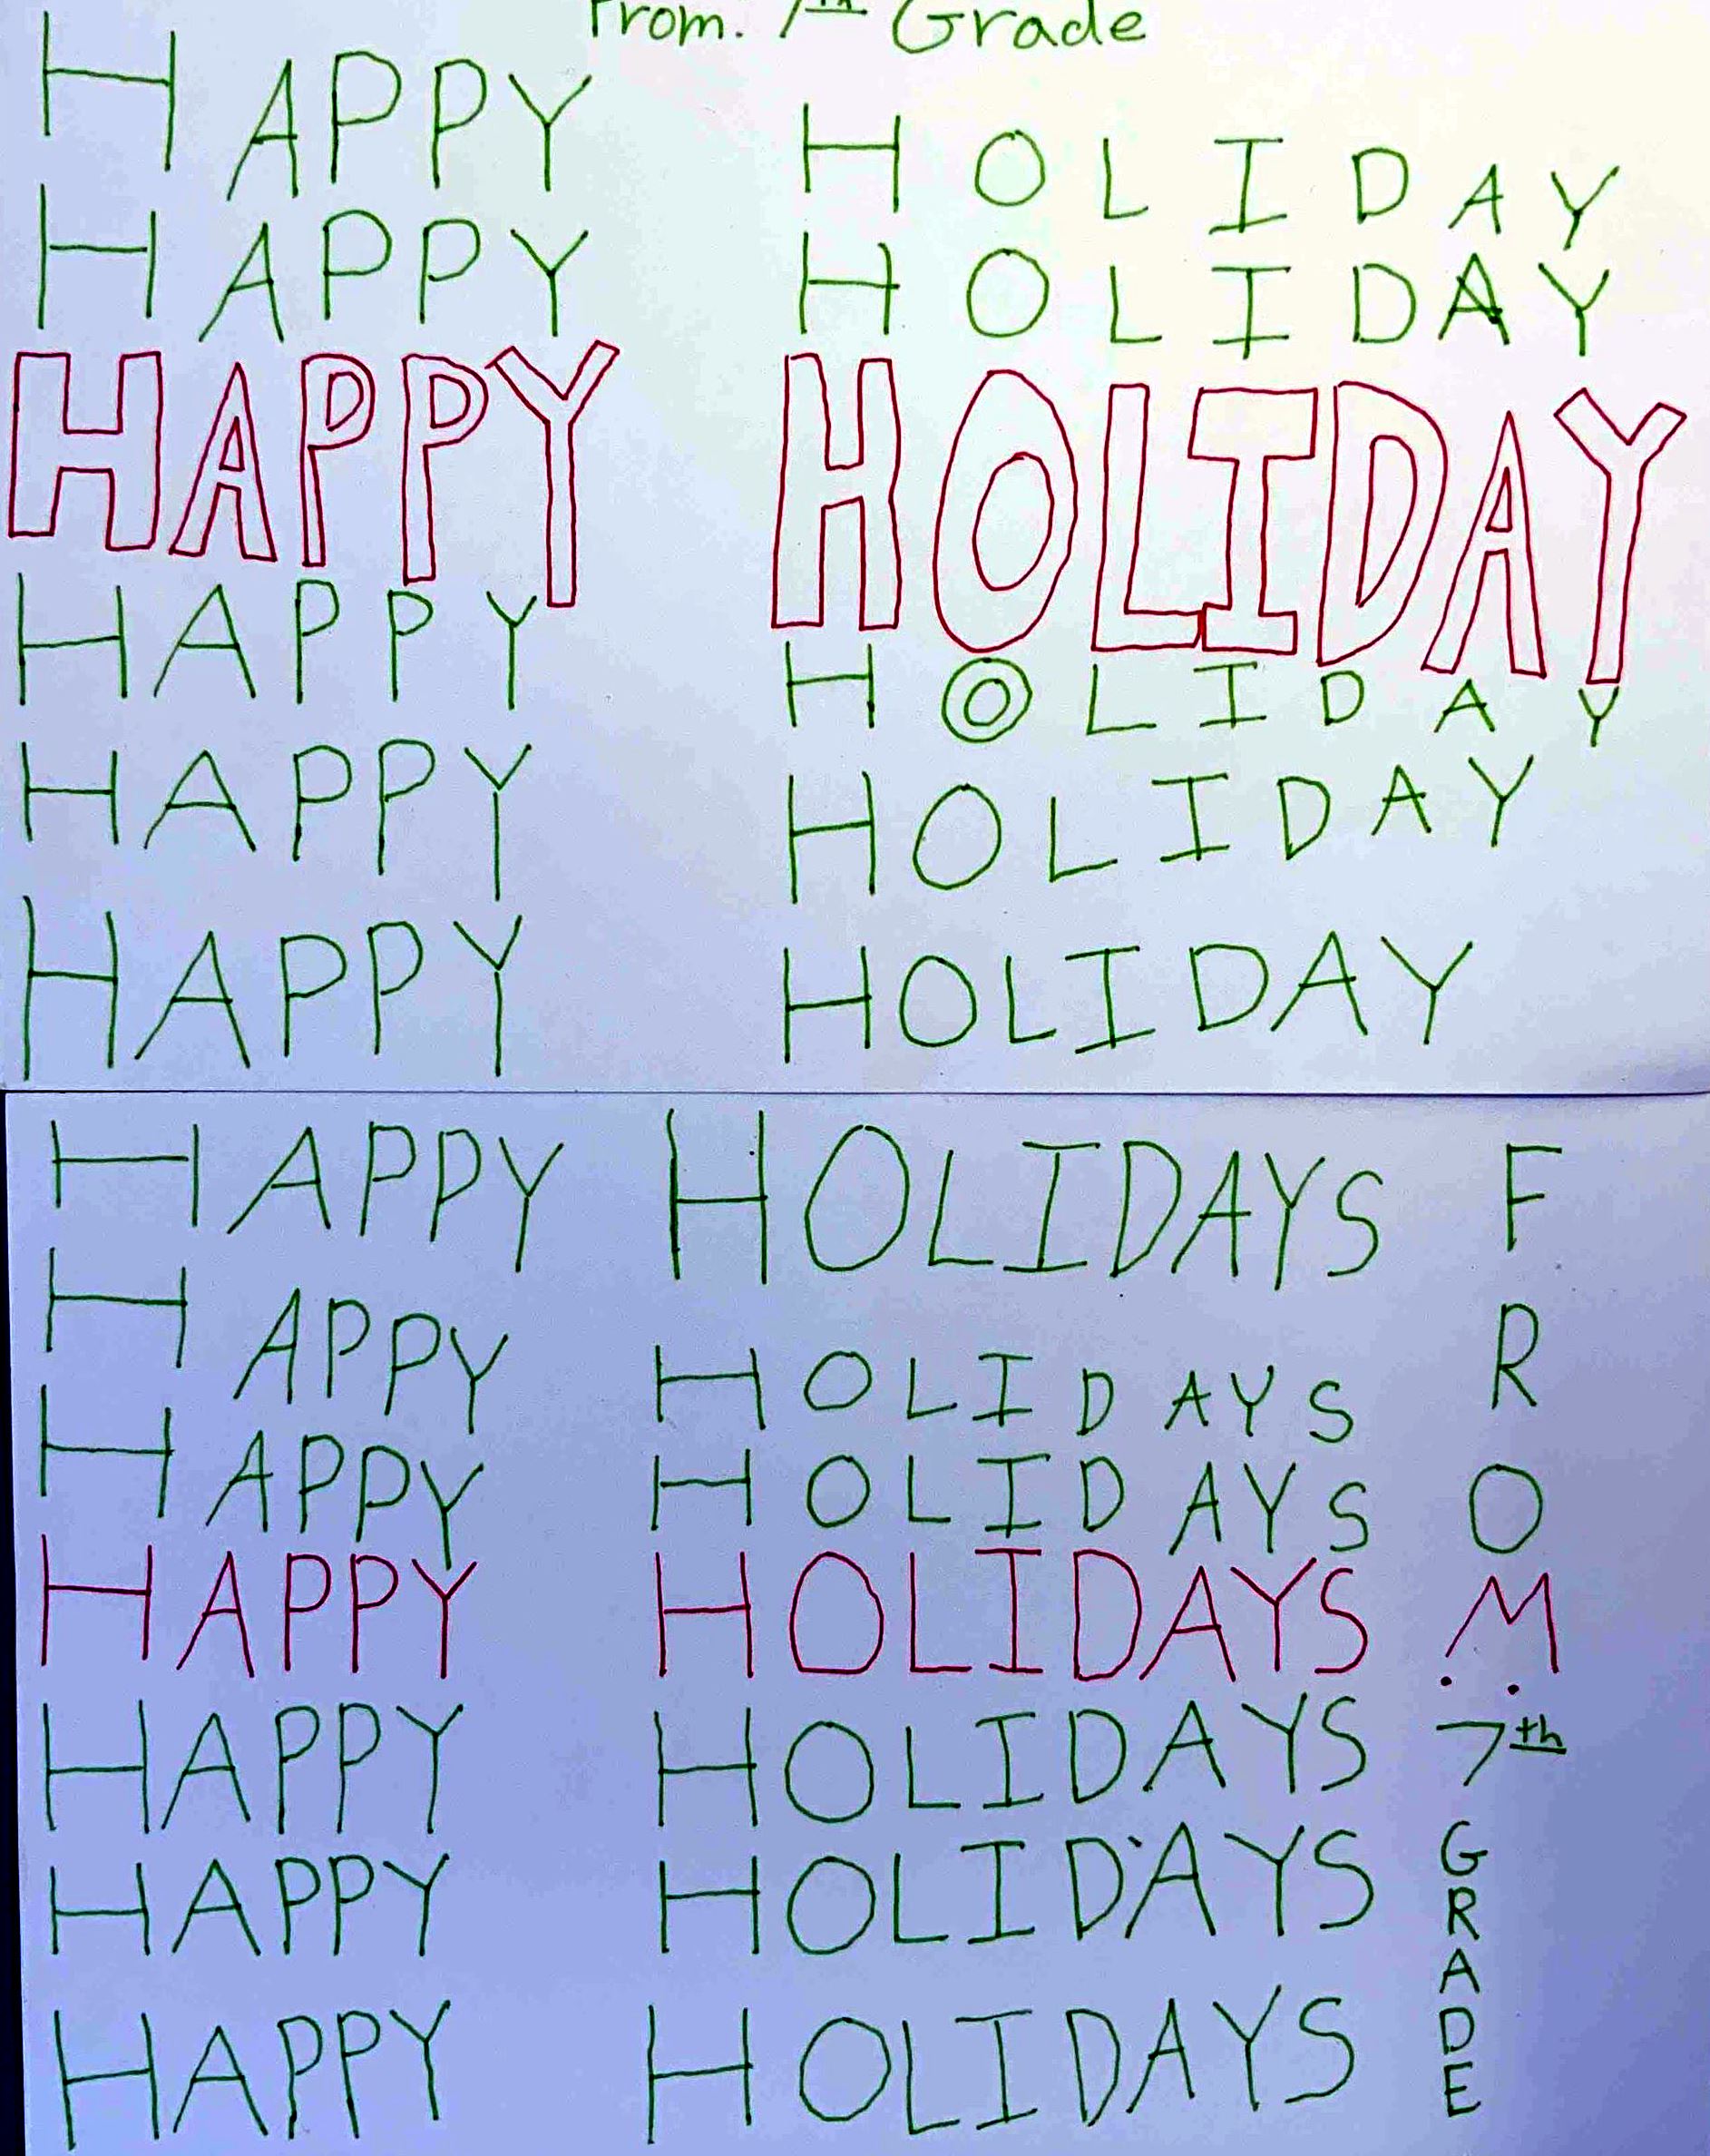 From. 7th Grade
HAPPY HOLIDAY
HAPPY HOLIDAY
HAPPY HOLIDAY
HAPPY HOLIDAY
HAPPY HOLIDAY
HAPPY HOLIDAY
HAPPY HOLIDAYS
HAPPY HOLIDAYS
HAPPY HOLIDAYS
HAPPY HOLIDAYS
HAPPY HOLIDAYS
HAPPY HOLIDAYS
HAPPY HOLIDAYS
FROM..
7th
GRADE